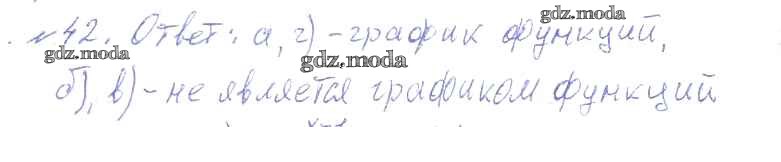 №42. Ответ: а, г) - график функций,
б), в) - не является графиком функций
gdz.moda
gdz.moda
gdz.moda